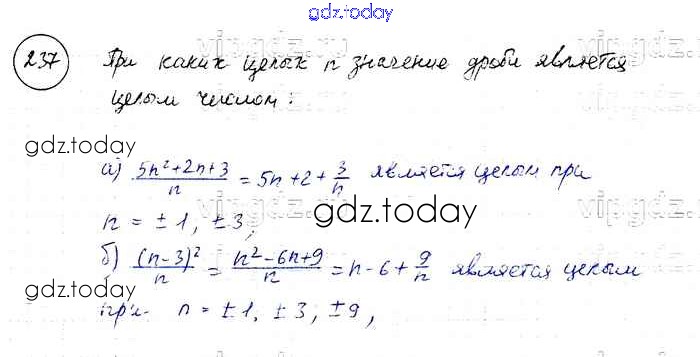 gdz.today
237 При каких целых n значение дроби является
целым числом:
gdz.today
а) (5n²+2n+3)/n = 5n+2+3/n является целым при
n = ±1, ±3,
gdz.today
б) (n-3)²/n = (n²-6n+9)/n = n-6+9/n является целым
gdz.today
при n = ±1, ±3, ±9,